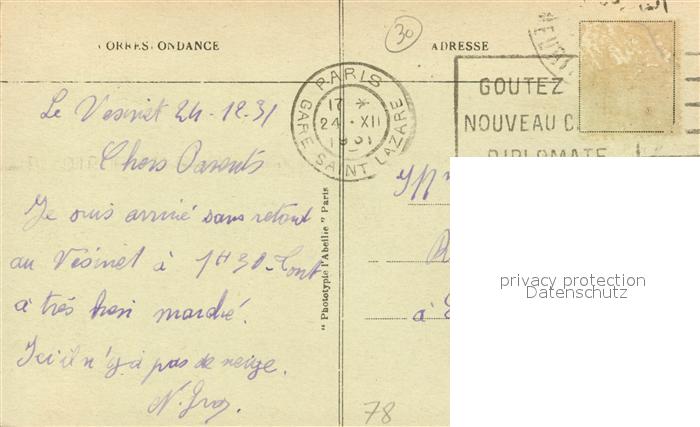 CORRESPONDANCE
Le Vésinet 24-12-31
Chers Parents
Je suis arrivé sans retard
au Vésinet à 1H30. Tout
a très bien marché.
Ici il n'y a pas de neige.
" Phototypie l'Abeille " Paris
30
ADRESSE
PARIS
17 *
24 · XII
1931
GARE SAINT LAZARE
GOUTEZ
NOUVEAU
DIPLOMATE
à
78
privacy protection
Datenschutz